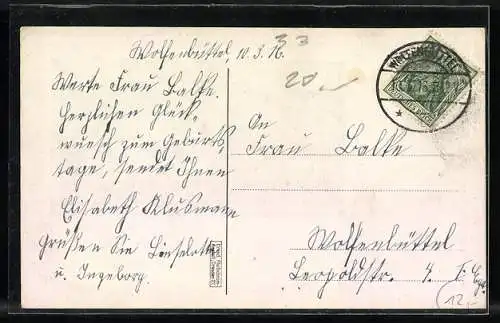 Wolfenbüttel, 10.3.16.
33
20.-
Werte Frau Balke.
Herzlichen Glück-
wunsch zum Geburts-
tage, sendet Ihnen
Elisabeth Klusmann
Grüßen Sie Lieselotte
u. Ingeborg.
An
Frau Balke
Wolfenbüttel
Leopoldstr. 4.
12,-